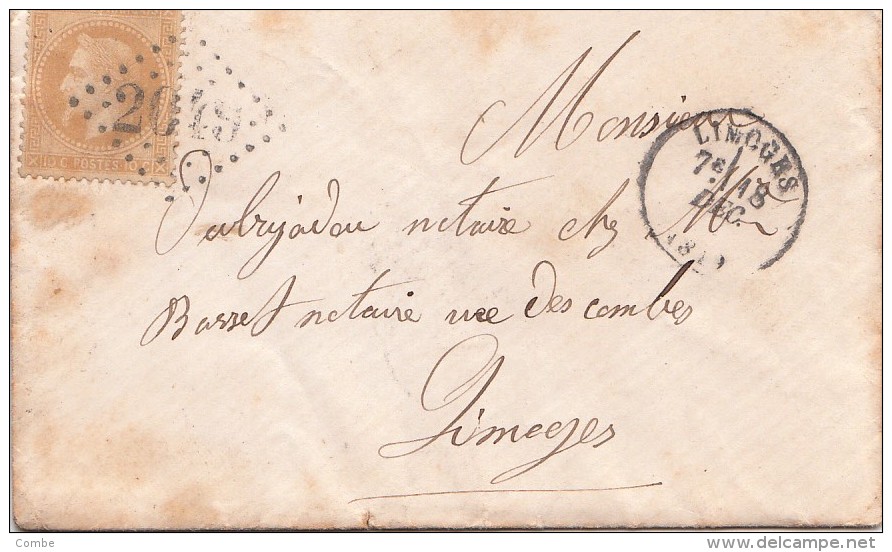 10 C. POSTES 10 C.
2049
LIMOGES
7E 18
DEC.
Monsieur
notaire chez Mr
Basset notaire rue des combes
Limoges
Combe
www.delcampe.net